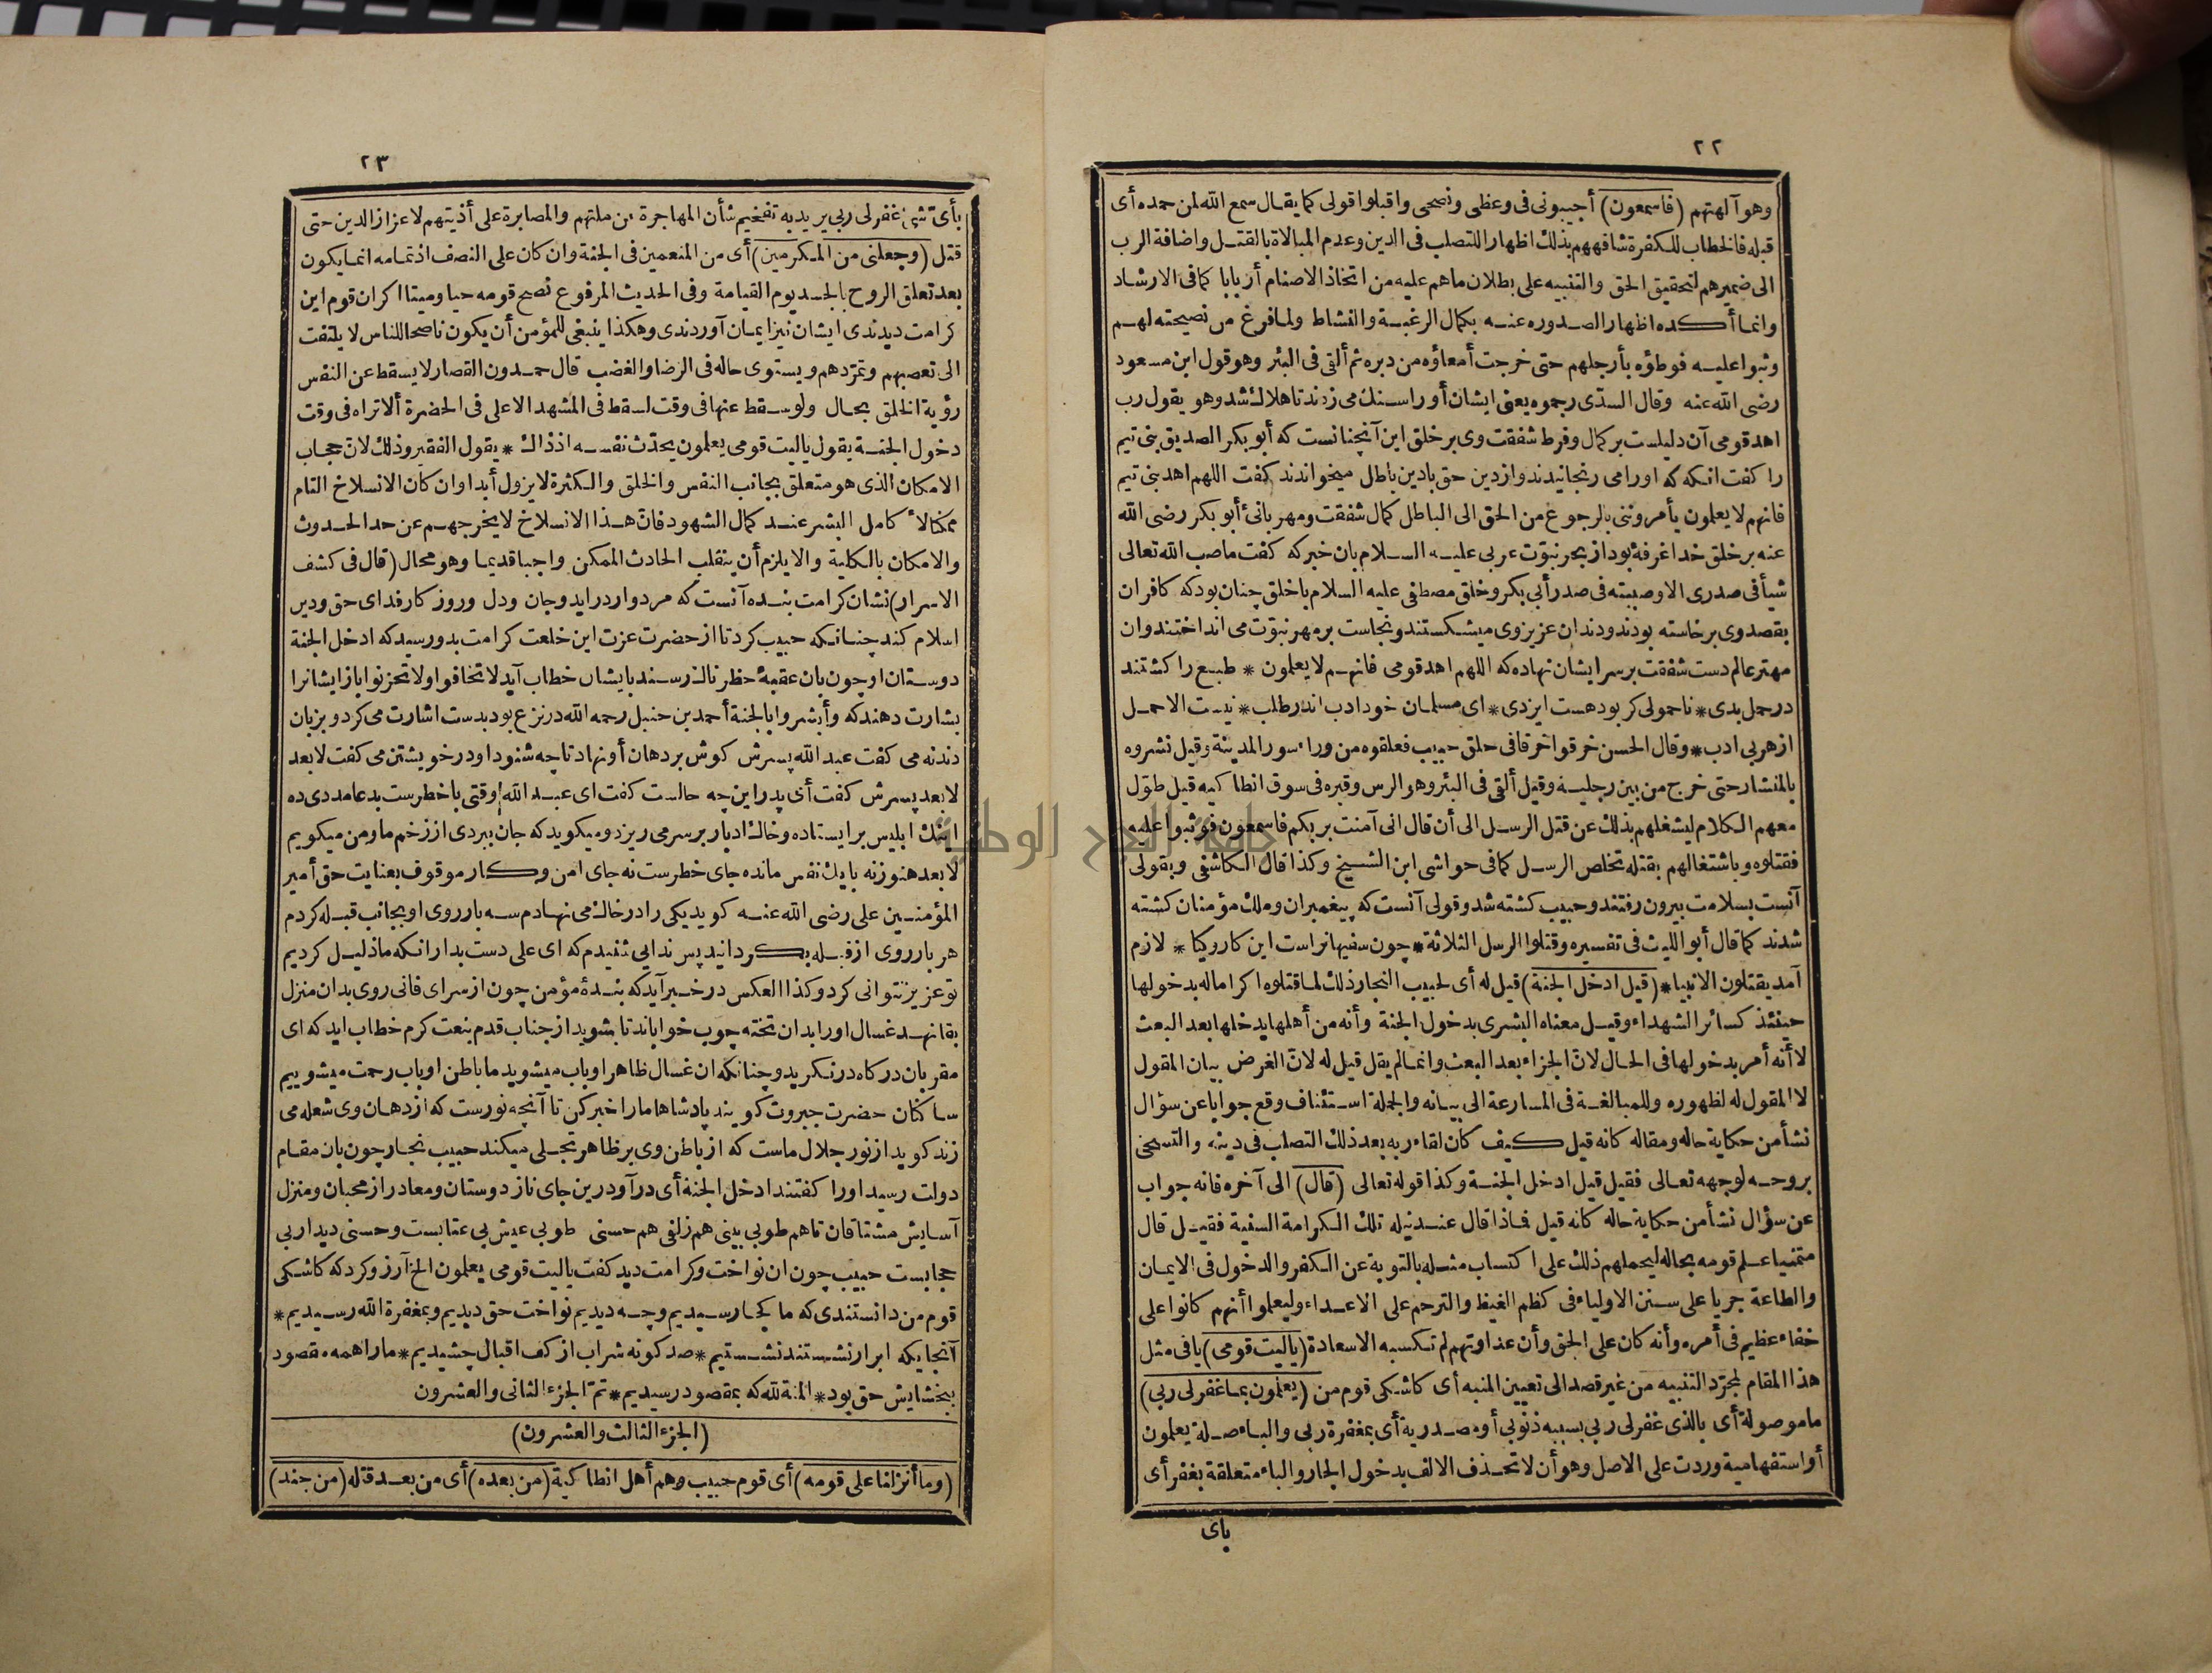 ٢٢
وهو آلهتهم (فاسمعون) أجيبونى فى وعظى ونصحى واقبلوا قولى كما يقال سمع الله لمن حمده أى
قبله فالخطاب للكفرة شافههم بذلك اظهارا للتصلب فى الدين وعدم المبالاة بالقتل واضافة الرب
الى ضميرهم لتحقيق الحق والتنبيه على بطلان ما هم عليه من اتخاذ الاصنام أربابا كما فى الارشاد
وانما أكده اظهارا لصدوره عنه بكمال الرغبة والنشاط ولما فرغ من نصيحته لهم
وثبوا عليه فوطؤه بأرجلهم حتى خرجت أمعاؤه من دبره ثم ألقى فى البئر وهو قول ابن مسعود
رضى الله عنه وقال السدّى رجموه يعنى ايشان أوراسنك مى زدند تا هلاك شد وهو يقول رب
اهد قومى آن دليلست بركمال وفرط شفقت وى بر خلق اين آنچنانست كه أبو بكر الصديق بنى تيم
را كفت انكه كه اورا مى رنجانيدند واز دين حق بادين باطل ميخواندند كفت اللهم اهد بنى تيم
فانهم لا يعلمون يأمروننى بالرجوع من الحق الى الباطل كمال شفقت ومهربانئ أبو بكر رضى الله
عنه بر خلق خدا غرفۀ بود از بحر نبوّت عربى عليه السلام بان خبر كه كفت ما صب الله تعالى
شيأ فى صدرى الا وصببته فى صدر أبى بكر وخلق مصطفى عليه السلام با خلق چنان بود كه كافران
بقصد وى برخاسته بودند ودندان عزيز وى ميشكستند ونجاست بر مهر نبوّت مى انداختند وان
مهتر عالم دست شفقت بر سر ايشان نهاده كه اللهم اهد قومى فانهم لا يعلمون * طبع را كشتند
در حمل بدى * نا حمولى كر بود هست ايزدى * اى مسلمان خود ادب اندر طلب * نيست الا حمل
از هر بى ادب * وقال الحسن خرقوا خرقا فى حلق حبيب فعلقوه من وراء سور المدينة وقيل نشروه
بالمنشار حتى خرج من بين رجليه وقيل ألقى فى البئر وهو الرس وقبره فى سوق انطاكيه قيل طوّل
معهم الكلام ليشغلهم بذلك عن قتل الرسل الى أن قال انى آمنت بربكم فاسمعون فوثبوا عليه
فقتلوه وباشتغالهم بقتله تخلص الرسل كما فى حواشى ابن الشيخ وكذا قال الكاشفى وبقولى
آنست بسلامت بيرون رفتند وحبيب كشته شد وقولى آنست كه پيغمبران وملك ومؤمنان كشته
شدند كما قال أبو الليث فى تفسيره وقتلوا الرسل الثلاثة * چون سفيهانراست اين كار وكيا * لازم
آمد يقتلون الانبيا * (قيل ادخل الجنة) قيل له أى لحبيب النجار ذلك لما قتلوه اكراما له بدخولها
حينئذ كسائر الشهداء وقيل معناه البشرى بدخول الجنة وأنه من أهلها يدخلها بعد البعث
لا أنه أمر بدخولها فى الحال لانّ الجزاء بعد البعث وانما لم يقل قيل له لانّ الغرض بيان المقول
لا المقول له لظهوره وللمبالغة فى المسارعة الى بيانه والجملة استئناف وقع جوابا عن سؤال
نشأ من حكاية حاله ومقاله كانه قيل كيف كان لقاء ربه بعد ذلك التصلب فى دينه والتسخى
بروحه لوجهه تعالى فقيل قيل ادخل الجنة وكذا قوله تعالى (قال) الى آخره فانه جواب
عن سؤال نشأ من حكاية حاله كانه قيل فاذا قال عند نيله تلك الكرامة السنية فقيل قال
متمنيا علم قومه بحاله ليحملهم ذلك على اكتساب مثله بالتوبة عن الكفر والدخول فى الايمان
والطاعة جريا على سنن الاولياء فى كظم الغيظ والترحم على الاعداء وليعلموا أنهم كانوا على
خفاء عظيم فى أمره وأنه كان على الحق وأن عداوتهم لم تكسبه الا سعادة (ياليت قومى) يا فى مثل
هذا المقام لمجرّد التنبيه من غير قصد الى تعيين المنبه أى كاشكى قوم من (يعلمون بما غفر لى ربى)
ما موصولة أى بالذى غفر لى ربى بسببه ذنوبى أو مصدرية أى بمغفرة ربى والباء صلة يعلمون
أو استفهامية وردت على الاصل وهو أن لا تحذف الالف بدخول الجار والباء متعلقة بغفر أى
باى
٢٣
بأىّ شئ غفر لى ربى يريد به تفخيم شأن المهاجرة عن ملتهم والمصابرة على أذيتهم لاعزاز الدين حتى
قتل (وجعلنى من المكرمين) أى من المنعمين فى الجنة وان كان على النصف اذ تمامه انما يكون
بعد تعلق الروح بالجسد يوم القيامة وفى الحديث المرفوع نصح قومه حيا وميتا اكران قوم اين
كرامت ديدندى ايشان نيز ايمان آوردندى وهكذا ينبغى للمؤمن أن يكون ناصحا للناس لا يلتفت
الى تعصبهم وتمرّدهم ويستوى حاله فى الرضا والغضب قال حمدون القصار لا يسقط عن النفس
رؤية الخلق بحال ولو سقط عنها فى وقت لسقط فى المشهد الاعلى فى الحضرة ألا تراه فى وقت
دخول الجنة يقول ياليت قومى يعلمون يحدّث نفسه اذ ذاك * يقول الفقير وذلك لانّ حجاب
الامكان الذى هو متعلق بجانب النفس والخلق والكثرة لا يزول أبدا وان كان الانسلاخ التام
ممكنا لاكامل البشر عند كمال الشهود فانّ هذا الانسلاخ لا يخرجهم عن حد الحدوث
والامكان بالكلية والا يلزم أن ينقلب الحادث الممكن واجبا قديما وهو محال (قال فى كشف
الاسرار) نشان كرامت بنده آنست كه مردوار درايد وجان ودل وروز كار فداى حق ودين
اسلام كند چنانكه حبيب كرد تا از حضرت عزت اين خلعت كرامت بدو رسيد كه ادخل الجنة
دوستان او چون بان عقبۀ خطرناك رسند بايشان خطاب آيد لا تخافوا ولا تحزنوا باز ايشانرا
بشارت دهند كه وأبشروا بالجنة أحمد بن حنبل رحمه الله در نزع بود بدست اشارت مى كرد وبزبان
دندنه مى كفت عبد الله پسرش كوش بر دهان أو نهاد تا چه شنود او در خويشتن مى كفت لا بعد
لا بعد پسرش كفت أى پدر اين چه حالست كفت اى عبد الله وقتى با خطرست بدعا مددى ده
اينك ابليس بر ايستاده وخاك ادبار بر سر مى ريزد وميكويد كه جان ببردى از زخم ما ومن ميكويم
لا بعد هنوز نه با يك نفس مانده جاى خطرست نه جاى امن وكار موقوف بعنايت حق أمير
المؤمنين على رضى الله عنه كويد يكى را در خاك مى نهادم سه بار روى او بجانب قبله كردم
هر بار روى از قبله بكردانيد پس ندايى شنيدم كه اى على دست بدار انكه ما ذليل كرديم
تو عزيز نتوانى كرد وكذا العكس در خبر آيد كه بندۀ مؤمن چون از سراى فانى روى بدان منزل
بقا نهد غسال اورا بدان تخته چوب خواباند تا بشويد از جناب قدم بنعت كرم خطاب ايد كه اى
مقربان دركاه درنكريد وچنانكه ان غسال ظاهر او باب ميشويد ما باطن او باب رحمت ميشوييم
ساكنان حضرت جبروت كويند پادشاها مارا خبر كن تا آنچه نورست كه از دهان وى شعله مى
زند كويد از نور جلال ماست كه از باطن وى بر ظاهر تجلى ميكند حبيب نجار چون بان مقام
دولت رسيد اورا كفتند ادخل الجنة أى در آ درين جاى ناز دوستان وميعاد راز محبان ومنزل
آسايش مشتاقان تا هم طوبى بينى هم زلفى هم حسنى طوبى عيش بى عتابست وحسنى ديدار بى
حجابست حبيب چون ان نواخت وكرامت ديد كفت ياليت قومى يعلمون الخ آرزو كرد كه كاشكى
قوم من دانستندى كه ما كجا رسيديم وچه ديديم نواخت حق ديديم وبمغفرة الله رسيديم *
آنجايكه ابرار نشستند نشستيم * صد كونه شراب از كف اقبال چشيديم * مارا همه مقصود
ببخشايش حق بود * المنة لله كه بمقصود رسيديم * تمّ الجزء الثانى والعشرون
(الجزء الثالث والعشرون)
(وما أنزلنا على قومه) أى قوم حبيب وهم أهل انطاكية (من بعده) أى من بعد قتله (من جند)
جامعة النجاح الوطنية